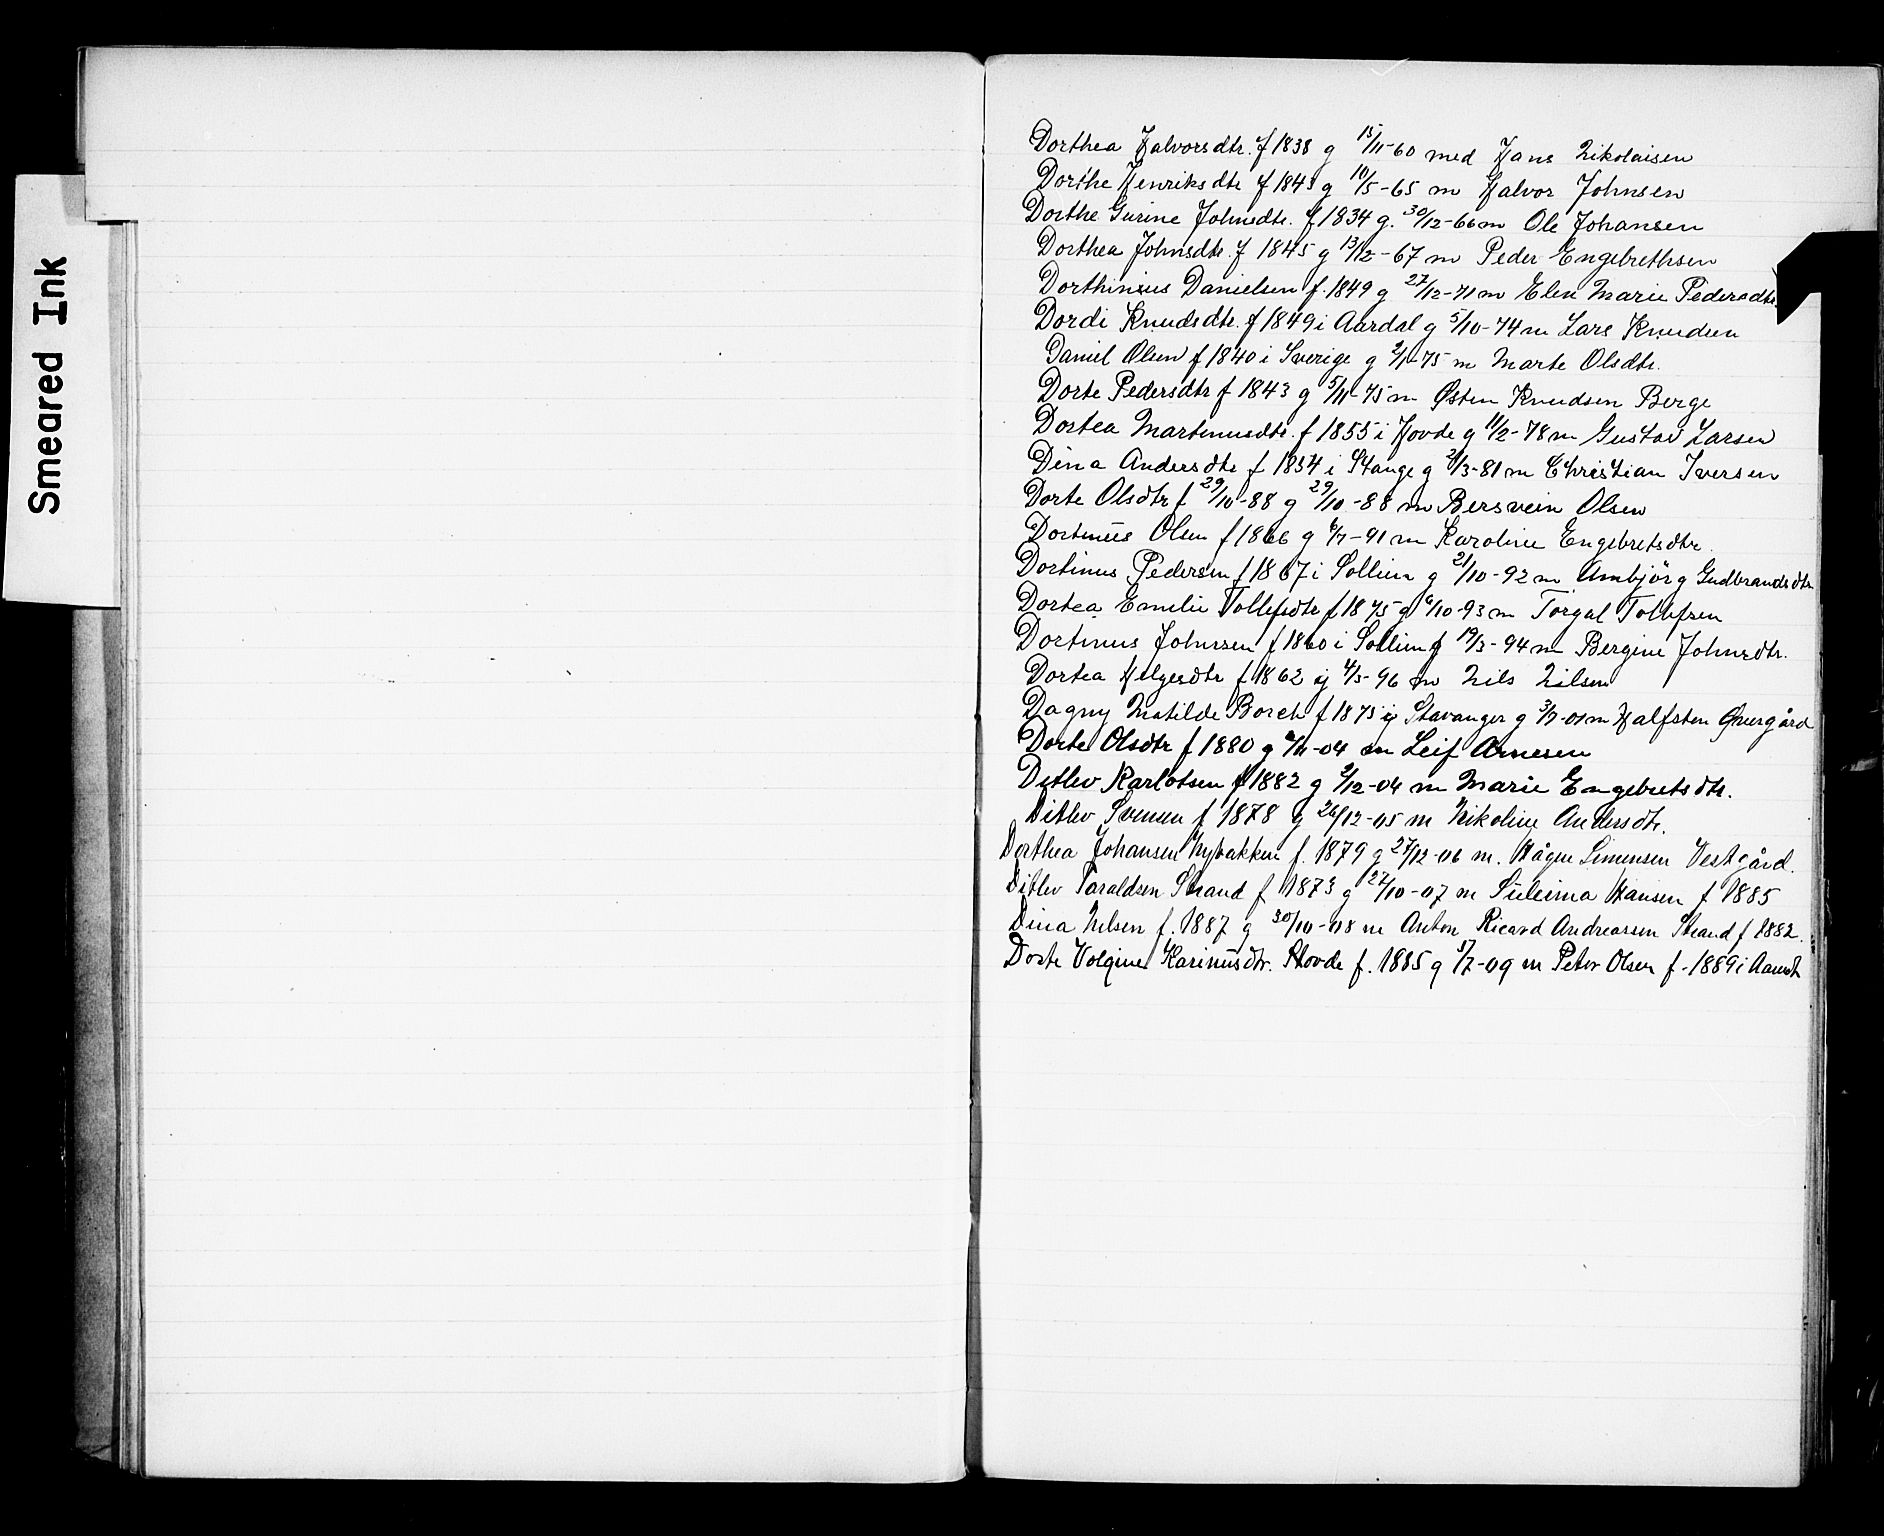 Smeared Ink
Dorthea Halvorsdtr. f 1838 g 15/11-60 med Hans Nikolaisen
Dorthe Henriksdtr f 1843 g 10/5-65 m Halvor Johnsen
Dorthe Gurine Johnsdtr. f 1834 g. 30/12-66 m Ole Johansen
Dorthea Johnsdtr. f 1845 g 13/12-67 m Peder Engebrethsen
Dorthinius Danielsen f. 1849 g 27/12-71 m Elen Marie Pedersdtr.
Dordi Knudsdtr. f 1849 i Aardal g 5/10-74 m Lars Knudsen
Daniel Olsen f 1840 i Sverige g 2/1-75 m Marte Olsdtr.
Dorte Pedersdtr f 1843 g 5/11-75 m Østen Knudsen Berge
Dortea Martinusdtr. f 1855 i Hovde g 11/2-78 m Gustav Larsen
Dina Andersdtr f 1854 i Stange g /3-81 m Christian Iversen
Dorte Olsdtr f 29/10-88 g 29/10-88 m Bersvein Olsen
Dortinus Olsen f 1866 g 6/7-91 m Karoline Engebretsdtr.
Dortinus Pedersen f 1867 i Sollien g 21/10-92 m Ambjörg Gudbrandsdtr
Dortea Emilie Tollefsdtr f 1875 g 6/10-93 m Torgal Tollefsen
Dortinus Johnsen f 1860 i Sollien g 19/3-94 m Bergine Johnsdtr.
Dortea Helgesdtr f 1862 g 4/3-96 m Nils Nilsen
Dagny Matilde Borch f 1875 i Stavanger g 3/7-01 m Halfsten Øvergård
Dorte Olsdtr f 1880 g /11-04 m Leif Arnesen
Ditlev Karlotsen f 1882 g 2/12-04 m Marie Engebretsdtr.
Ditlev Svensen f 1878 g 26/12-05 m Nikoline Andersdtr.
Dorthea Johansen Nybakken f. 1879 g 27/12-06 m. Hågen Simensen Vestgård.
Ditlev Taraldsen Strand f 1873 g 27/10-07 m Sulema Hansen f 1885
Dina Nilsen f. 1887 g 30/10-08 m Anton Ricard Andreassen Strand f 1882.
Dorte Volgine Karinusdtr. Hovde f. 1885 g /7-09 m Peter Olsen f. 1889 i Aamot